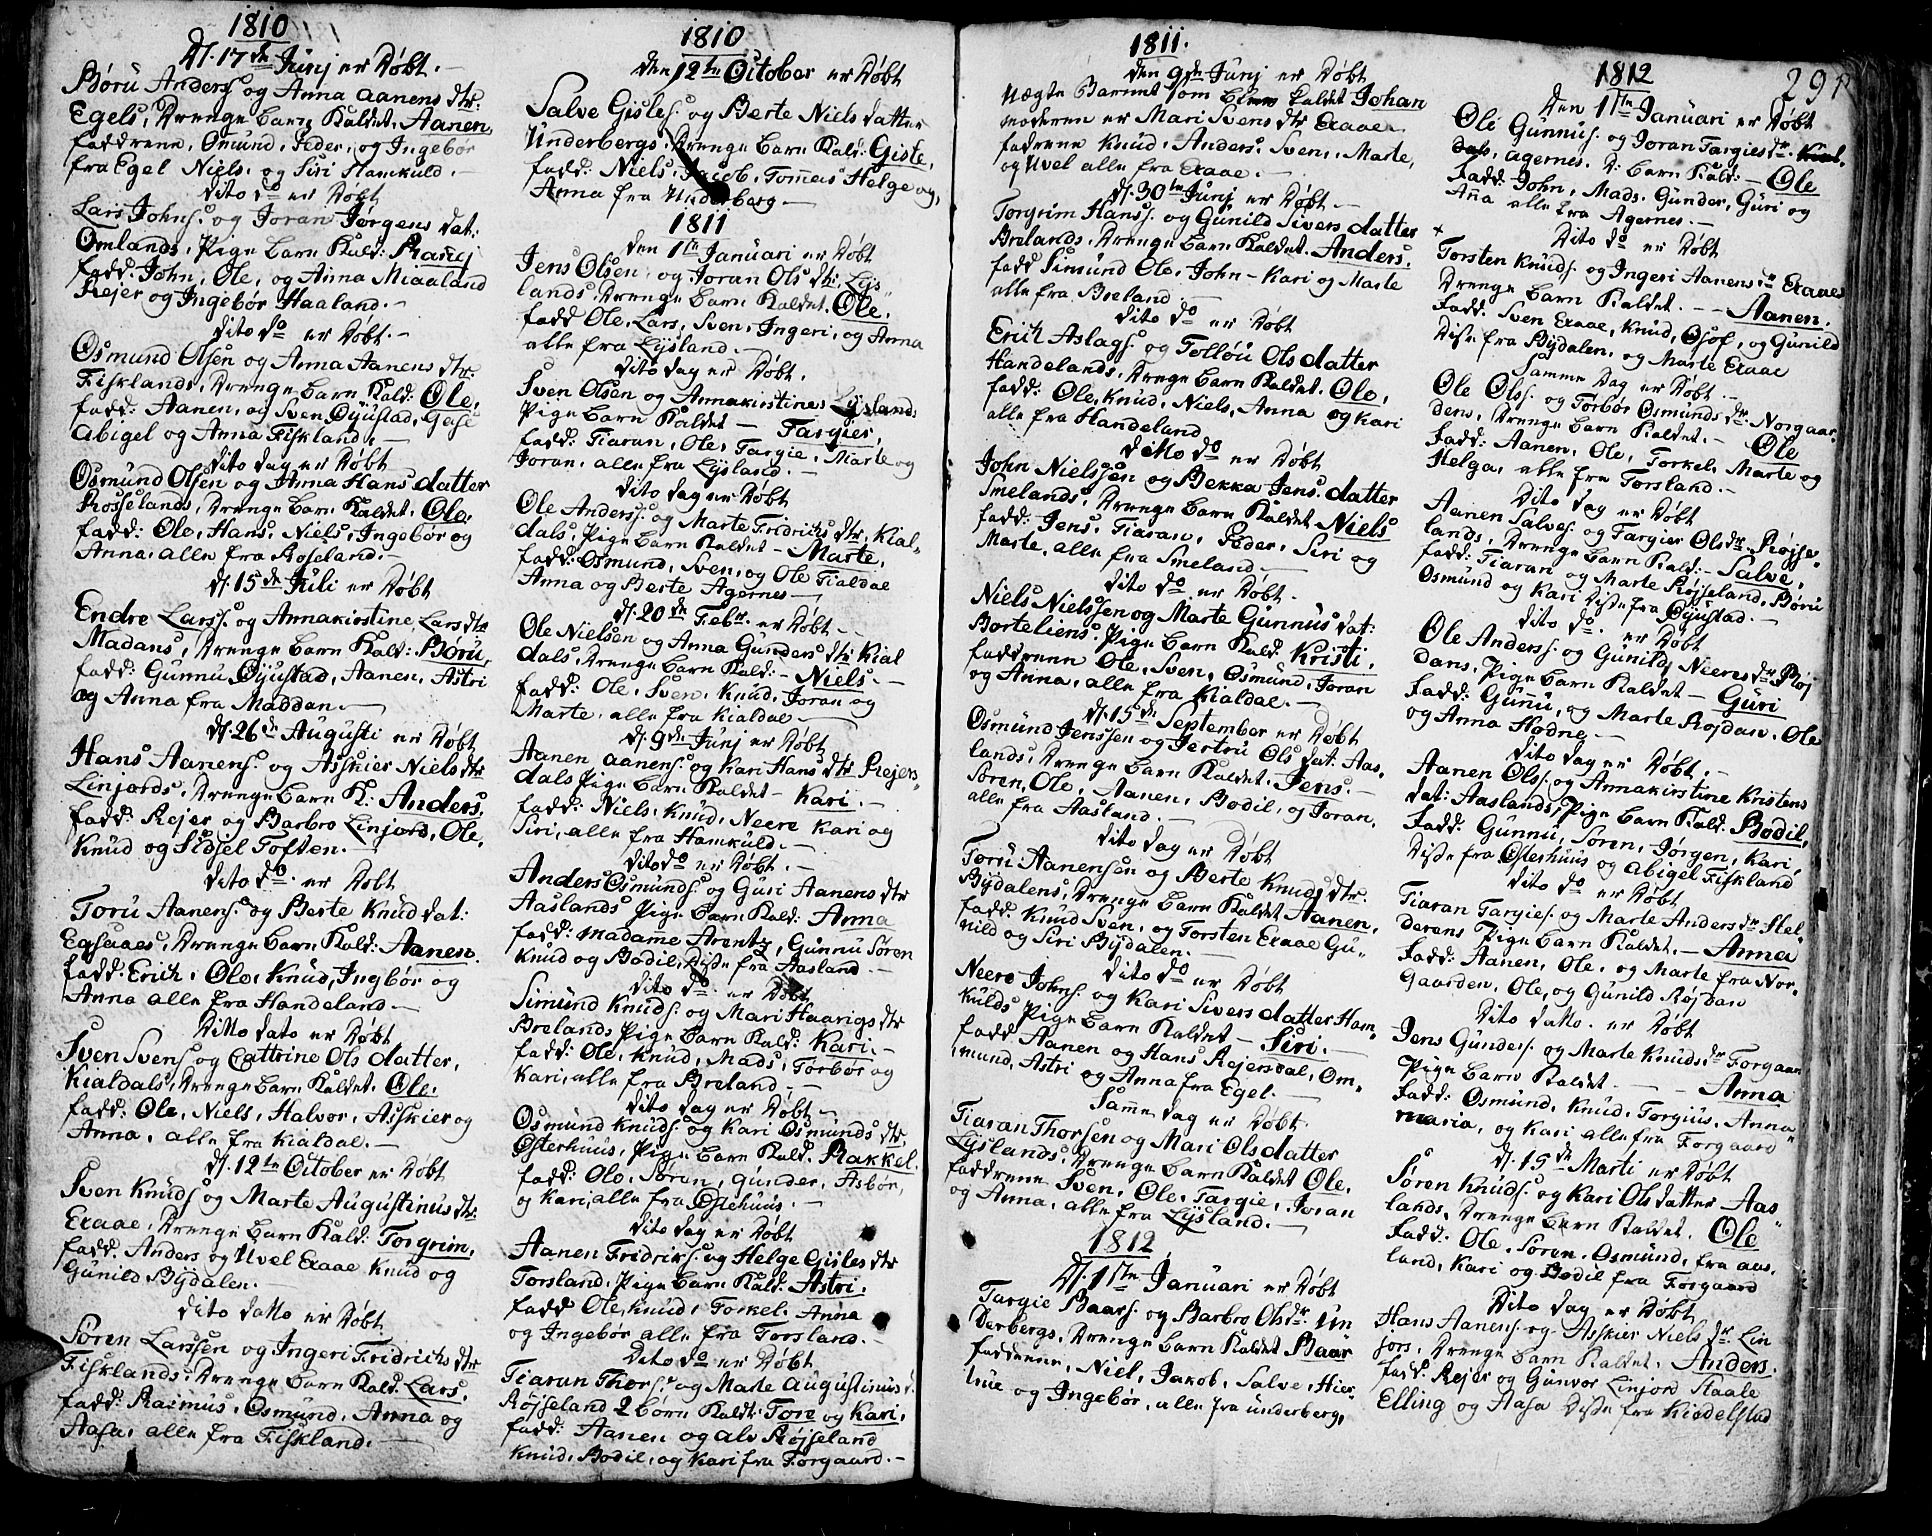 1810
Df. 17de Junj er Døbt.
Børu Anders. og Anna Aanens dtr:
Egels, Drenge barn Kaldet. Aanen,
faddrene, Omund, Peder, og Ingebør
fra Egel Niels. og Siri Hamkuld.
Dito do er Døbt
Lars Johns. og Joran Jørgens dat:
Omlands, Pige barn Kald: Ranej
fadd. John, Ole, og Anna Miaaland
Rejer og Ingebør Haaland.
Dito do er Døbt.
Osmund Olsen og Anna Aanens dtr.
Fisklands, Drenge barn Kald: Ole.
fadd: Aanen, og Sven Øyustad, Gese
Abigel og Anna Fiskland.
Dito dag er Døbt
Osmund Olsen og Anna Hans datter
Rosselands, Drenge barn Kaldet. Ole.
fadd: Ole, Hans, Niels, Ingebør og
Anna, alle fra Roseland.
Df. 15de Juli er Døbt
Endre Larss. og Annakirstine Lars dtr
Madans, Drenge barn Kald: Børu,
fadd: Gunnu Øyustad, Aanen, Astri
og Anna fra Maddan.
Df. 26de Augusti er Døbt
Hans Aanens. og Asskier Niels dtr
Linjords, Drenge barn K: Anders.
fadd: Rejer og Barbro Linjord, Ole,
Knud og Sidsel Toften.
Dito do. er Døbt
Toru Aanens. og Berte Knud dat:
Egsaaes, Drenge barn Kald: Aanen.
fadd: Erich, Ole, Knud, Ingbør og
Anna alle fra Handeland.
Ditto dato er Døbt
Sven Svens og Cattrine Ols datter,
Kialdals, Drenge barn Kaldet. Ole.
fadd: Ole, Niels, Halvor, Asskier og
Anna, alle fra Kialdal.
Df. 12te October er Døbt
Sven Knuds. og Marte Augustinus dtr:
Eraae, Drenge barn Kald: Torgrim,
fadd. Anders og Uvel Eraae Knud og
Gunild Bÿdalen.
Dito datto er Døbt
Søren Larssen og Ingeri Fridrichs dtr
Fisklands, Drenge barn Kald. Lars.
fadd: Rasmus, Osmund, Anna og
Aasa, alle fra Fiskland.
1810
den 12te October er Døbt
Salve Gisles. og Berte Niels datter
Underbergs, Drenge barn Kald: Giste,
fadd: Niels, Jacob, Tommes Helge og,
Anna fra Underberg.
1811
den 1te Januari er Døbt
Jens Olsen og Joran Ols dtr: Lÿs
lands, Drenge barn Kaldet. Ole.
fadd Ole, Lars, Sven, Ingeri, og Anna
alle fra Lÿsland.
Dito dag er Døbt.
Sven Olsen og Annakirstines Lÿslands
Pige barn Kaldet — Targier,
fadd: Tiaran, Ole, Targie, Marte og
Joran, alle fra Lÿsland.
Dito dag er Døbt
Ole Anderss. og Marte Fridrichs dtr, Kial-
dals, Pige barn Kaldet — Marte,
fadd: Osmund, Sven, og Ole Tialdae
Anna og Berte Agernes
Df. 20de Febr. er Døbt
Ole Nielsen og Anna Gunders dtr Kial
dals, Drenge barn Kald: — Niels.
fadd: Ole, Sven, Knud, Joran og
Marte, alle fra Kialdal.
Df. 9de Junj er Døbt
Aanen Aanens. og Kari Hans dtr Rejers-
dals Pige barn Kaldet — Kari.
fadd: Niels, Knud, Neere Kari og
Siri, alle fra Hamkuld.
Dito do er Døbt.
Anders Osmunds. og Guri Aanens dtr
Aaslands Pige barn Kald: Anna
fadd: Madamme Arentz, Gunnu Søren
Knud og Bodil, Disse fra Aasland.
Dito do. er Døbt
Simund Knuds. og Mari Haarigs dtr
Brelands Pige barn Kald: Kari.
fadd: Ole, Knud, Mads, Torbør og
Kari, alle fra Breland.
Dito dag er Døbt
Osmund Knuds. og Kari Osmunds dtr
Østerhuus, Pige barn Kald. Rakkel.
fadd: Ole, Søren, Gunder, Asbør,
og Kari, alle fra Østehuus.
Dito dag er Døbt
Aanen Fridriks. og Helge Gisles dtr
Torsland, Pige barn Kald: Astri.
fadd Ole Knud, Torkel, Anna
og Ingebør alle fra Torsland.
Dito do er Døbt
Tiaran Thors. og Marte Augustinus d.
Røÿseland 2 børn Kaldt: Tore og Kari,
fadd: Aanen og Alv Røÿseland
Knud, Bodil, og Kari fra Forgaard.
1811.
den 9de Junj er Døbt
Uægte Barnet som blev Kaldet Johan
moderen er Mari Svens dtr Eraae.
fadrene Knud, Anders, Sven, Marte,
og Uvel alle fra Eraae.
Df. 30te Junj er Døbt
Torgrim Hanss. og Gunild Sivers datter
Brelands, Drenge barn Kaldet. Anders.
fadd Simund Ole, John — Kari og Marte
alle fra Breland
Dito do er Døbt
Erich Aslags. og Tolløu Ols datter
Handelands, Drenge barn Kaldet. Ole.
fadd: Ole, Knud, Niels, Anna og Kari
alle fra Handeland
Ditto do er Døbt
John Nielssen og Bekka Jens datter
Smelands, Drenge barn Kaldet Niels
fadd: Jens, Tiaran, Peder, Siri og
Marte, alle fra Smeland.
Dito do er Døbt.
Niels Nielssen og Marte Gunnus dat:
Borteliens, Pige barn Kald. Kristi,
faddrene Ole, Sven, Osmund, Joran
og Anna, alle fra Kialdae.
Df. 15de September er Døbt
Osmund Jenssen og Jertru Ols dat: Aas,
lands, Drenge barn Kaldet. Jens.
Søren, Ole, Aanen, Bodil, og Joran,
alle fra Aasland.
Dito dag er Døbt
Toru Aanensen og Berte Knuds dtr.
Bÿdalens, Drenge barn Kaldet Aanen,
fadd. Knud Sven, og Torsten Eraae Gu-
nild og Siri Bÿdalen.
Dito do er Døbt
Neere Johns. og Kari Sivers datter Ham-
kulds Pige barn Kaldet — Siri.
fadd: Aanen og Hans Rejersdal, Om-
mund, Astri og Anna fra Egel.
Samme dag er Døbt
Tiaran Thorsen og Mari Ols datter
Lÿslands, Drenge barn Kaldet Ole.
faddrene Sven, Ole, Targie, Joran
og Anna, alle fra Lÿsland.
1812
Df. 1ste Januari er Døbt
Targie Baars. og Barbro Ols dr. Un
derbergs, Drenge barn Kaldet Baar
faddrene, Niel, Jakob, Salve, Hier,
lrue og Ingebør, alle fra Underberg,
1812
291
Den 1ste Januari er Døbt
Ole Gunnus. og Joran Targies dr. Kial-
dals, Agernes. D: barn Kald: — Ole
Fadd: John, Mads, Gunder, Guri og
Anna alle fra Agernes.
Dito do er Døbt
+
Torsten Knuds. og Ingeri Aanens dr Eraaes
Drenge barn Kaldet. — Aanen.
Fadd: Sven Eraae, Knud, Osof, og Gunild
Disse fra Bÿdalen, og Marte Eraae
Samme Dag er Døbt
Ole Ols. og Torbør Osmunds dr. Norgaar-
dens, Drenge barn Kaldet. — Ole
Fadd: Aanen, Ole, Torkel, Marte og
Helga, alle fra Torsland.
Dito dag er Døbt
Aanen Salves. og Targier Ols dr Røÿse-
lands, Drenge barn Kald: — Salve,
fadd: Tiaran og Marte Røÿseland, Børu
Osmund og Kari Disse fra Øÿustad.
Dito do. er Døbt
Ole Anders. og Gunild Neeres dr Røÿ
dans, Pige barn Kaldet — Guri
Fadd: Gunnu, og Marte Roÿdan, Ole
og Anna Hodne.
Dito dag er Døbt.
Aanen Ols. og Annakirstine Kristens
dat: Aaslands, Pige barn Kald. Bodil,
Fadd: Gunnu, Søren, Jørgen, Kari,
Disse fra Østerhuus og Abigel Fiskland
Dito do er Døbt
Tiaran Targies. og Marte Anders dr Hel-
derens Pige barn Kaldet. — Anna
Fadd: Aanen, Ole, og Marte fra Nor-
Gaarden, Ole, og Gunild Røÿdan
Dito datto. er Døbt
Jens Gunders. og Marte Knuds dr Forgaan
Pige barn Kaldet — Anna
Fadd: Osmund, Knud, Torgius, Anna-
maria, og Kari alle fra Forgaard
Df. 15de Marti er Døbt
Søren Knuds. og Kari Ols datter Aas-
lands, Drenge barn Kaldet. Ole
Fadd: Ole, Søren, Osmund, fra Aas,
land, Kari og Bodil fra Forgaard
Dito dag er Døbt
Hans Aanens. og Asskier Niels dr Lin
jors, Drenge barn Kaldet. Anders.
Fadd: Rejer og Gunvor Linjord Staale
Elling og Aasa Disse fra Kiødelstad